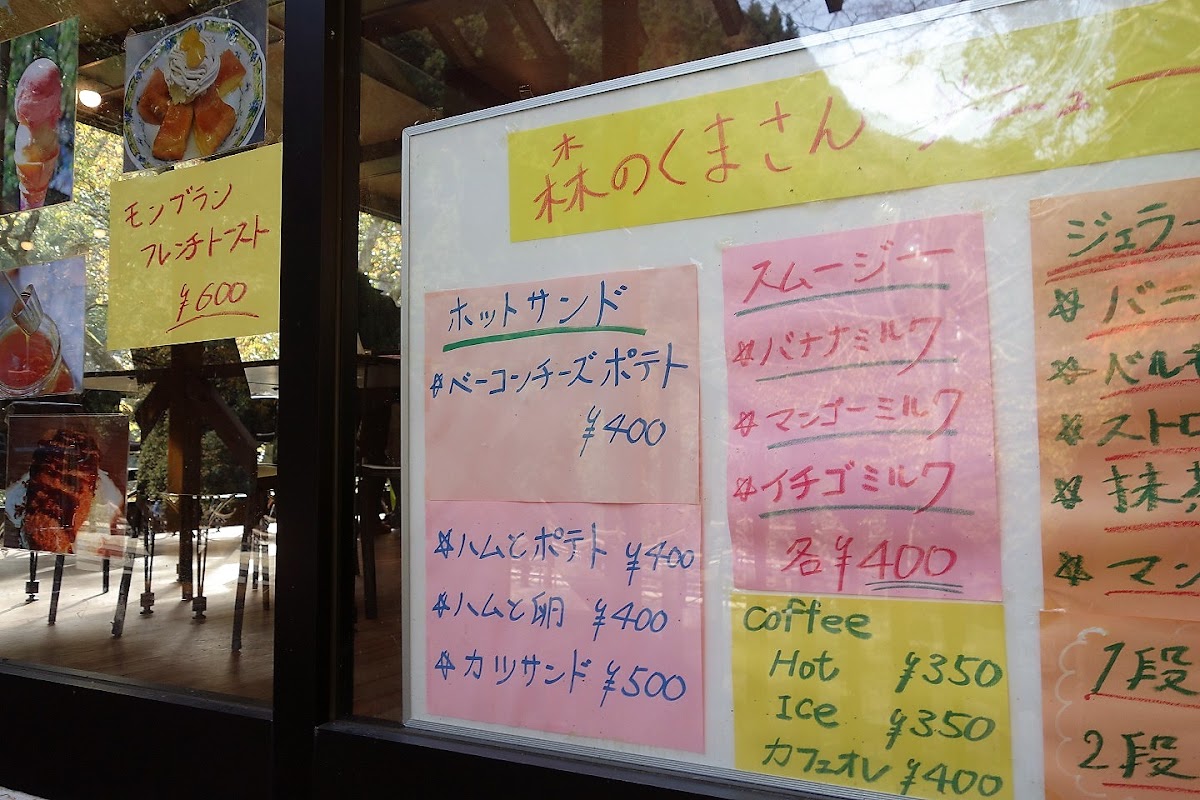 モンブラン
フレンチトースト
¥600
森のくまさん メニュー
ホットサンド
☆ベーコンチーズポテト
¥400
☆ハムとポテト ¥400
☆ハムと卵 ¥400
☆カツサンド ¥500
スムージー
☆バナナミルク
☆マンゴーミルク
☆イチゴミルク
各¥400
coffee
Hot ¥350
Ice ¥350
カフェオレ ¥400
ジェラー
☆バニ
☆ベルギ
☆ストロ
☆抹茶
☆マン
1段
2段